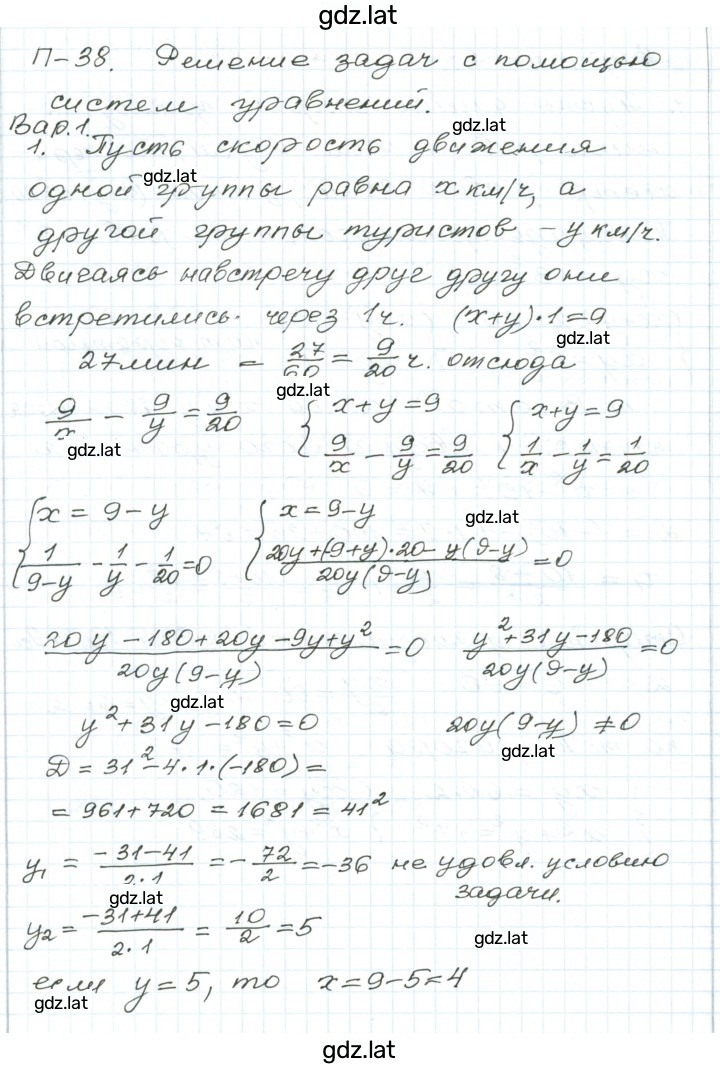 gdz.lat
П-38. Решение задач с помощью
систем уравнений.
Вар.1.
gdz.lat
1. Пусть скорость движения
gdz.lat
одной группы равна x км/ч, а
другой группы туристов - y км/ч.
Двигаясь навстречу друг другу они
встретились через 1ч. (x+y)·1=9
gdz.lat
27мин = 27/60 = 9/20 ч. отсюда
gdz.lat
9/x - 9/y = 9/20 { x+y=9 { x+y=9
gdz.lat
9/x - 9/y = 9/20 1/x - 1/y = 1/20
{ x = 9-y { x=9-y
gdz.lat
1/(9-y) - 1/y - 1/20 = 0 (20y+(9+y)·20- y(9-y))/(20y(9-y)) = 0
(20y-180+20y-9y+y²)/(20y(9-y)) = 0 (y²+31y-180)/(20y(9-y)) = 0
gdz.lat
y²+31y-180=0 20y(9-y) ≠0
gdz.lat
D = 31²-4·1·(-180)=
= 961+720 = 1681 = 41²
y₁ = (-31-41)/(2·1) = -72/2 = -36 не удовл. условию
задачи.
gdz.lat
y₂ = (-31+41)/(2·1) = 10/2 = 5
gdz.lat
если y=5, то x=9-5=4
gdz.lat
gdz.lat